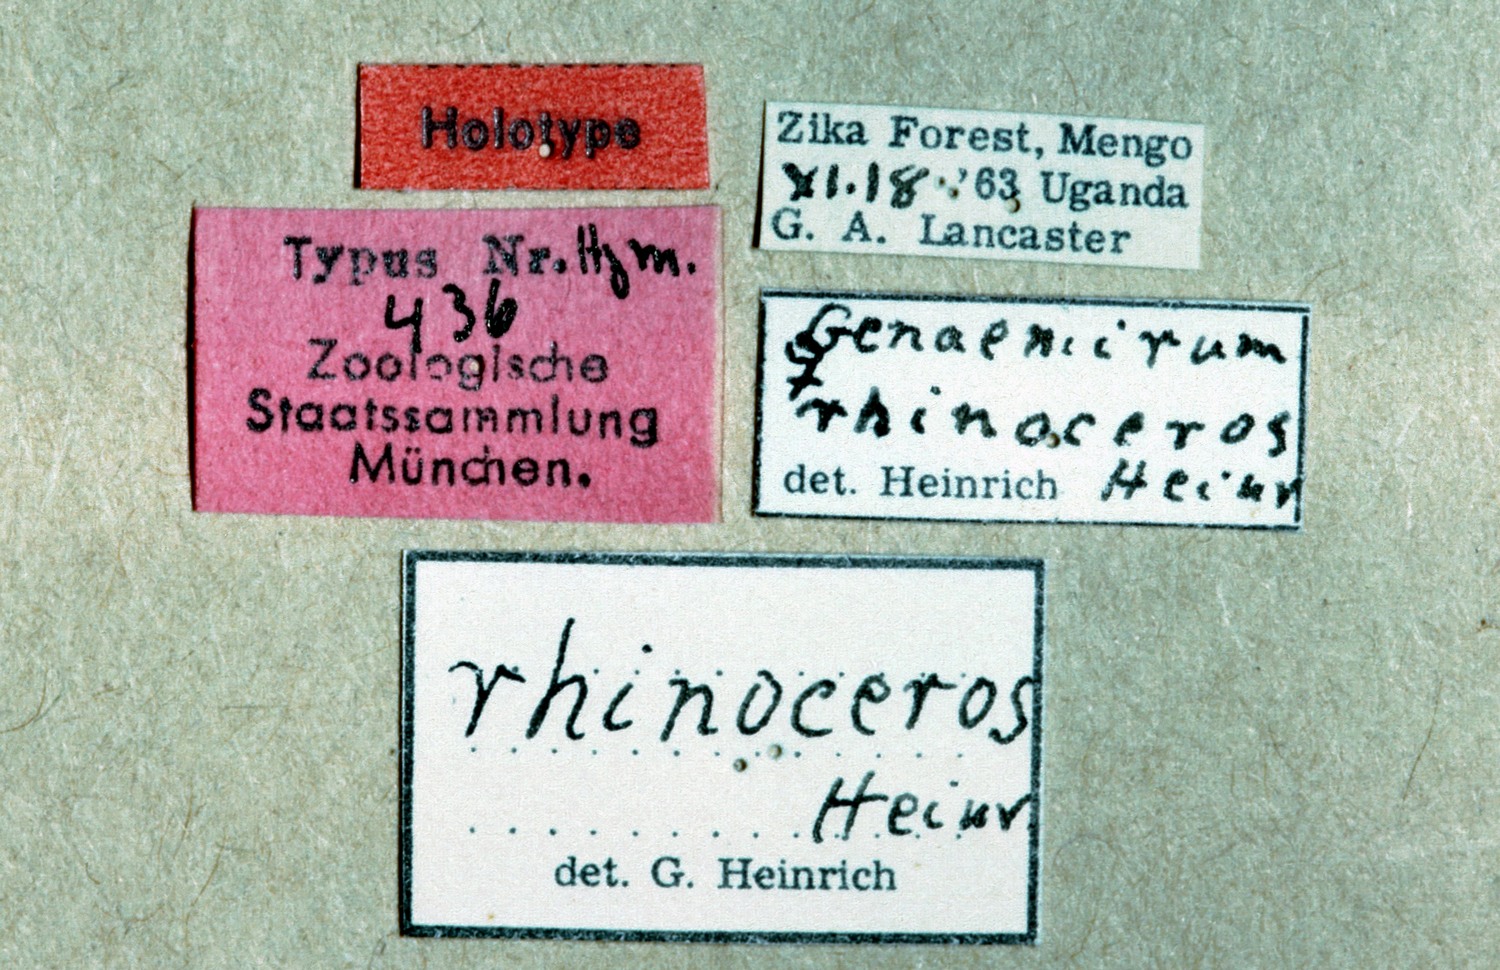 Holotype
Typus Nr. Hym.
436
Zoologische
Staatssammlung
München.
Zika Forest, Mengo
XI.18.'63 Uganda
G. A. Lancaster
Genaemirum
♀
rhinoceros
det. Heinrich Heinr
rhinoceros
Heinr
det. G. Heinrich